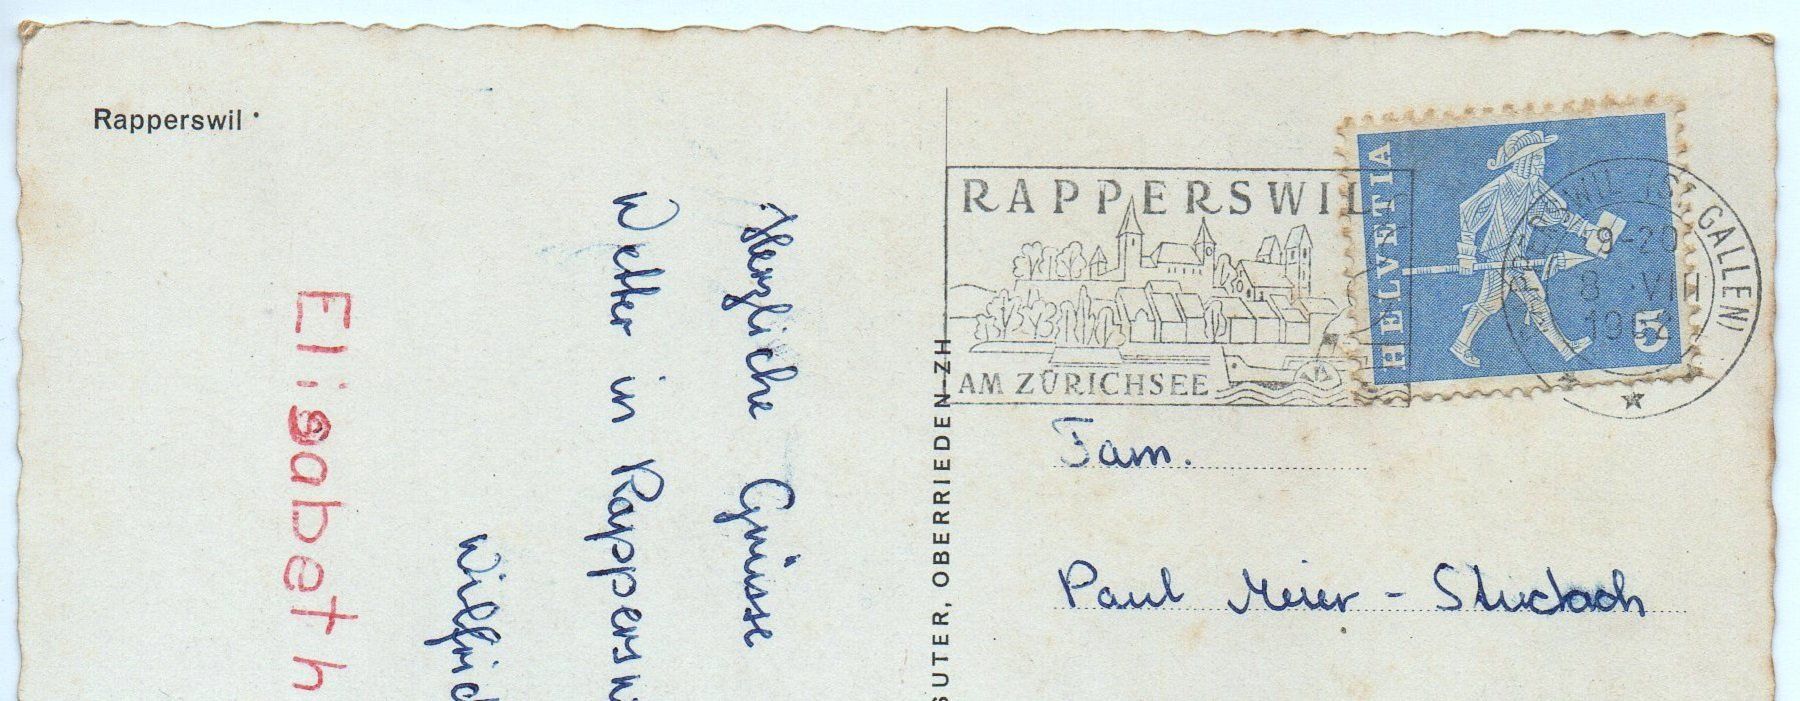 Rapperswil
Herzliche Grüsse
Wetter in Rappersw
Wilfrid
Elisabeth
SUTER, OBERRIEDEN-ZH
RAPPERSWIL
AM ZÜRICHSEE
HELVETIA
5
(ST. GALLEN)
9-20
8. VIII
Fam.
Paul Meier -